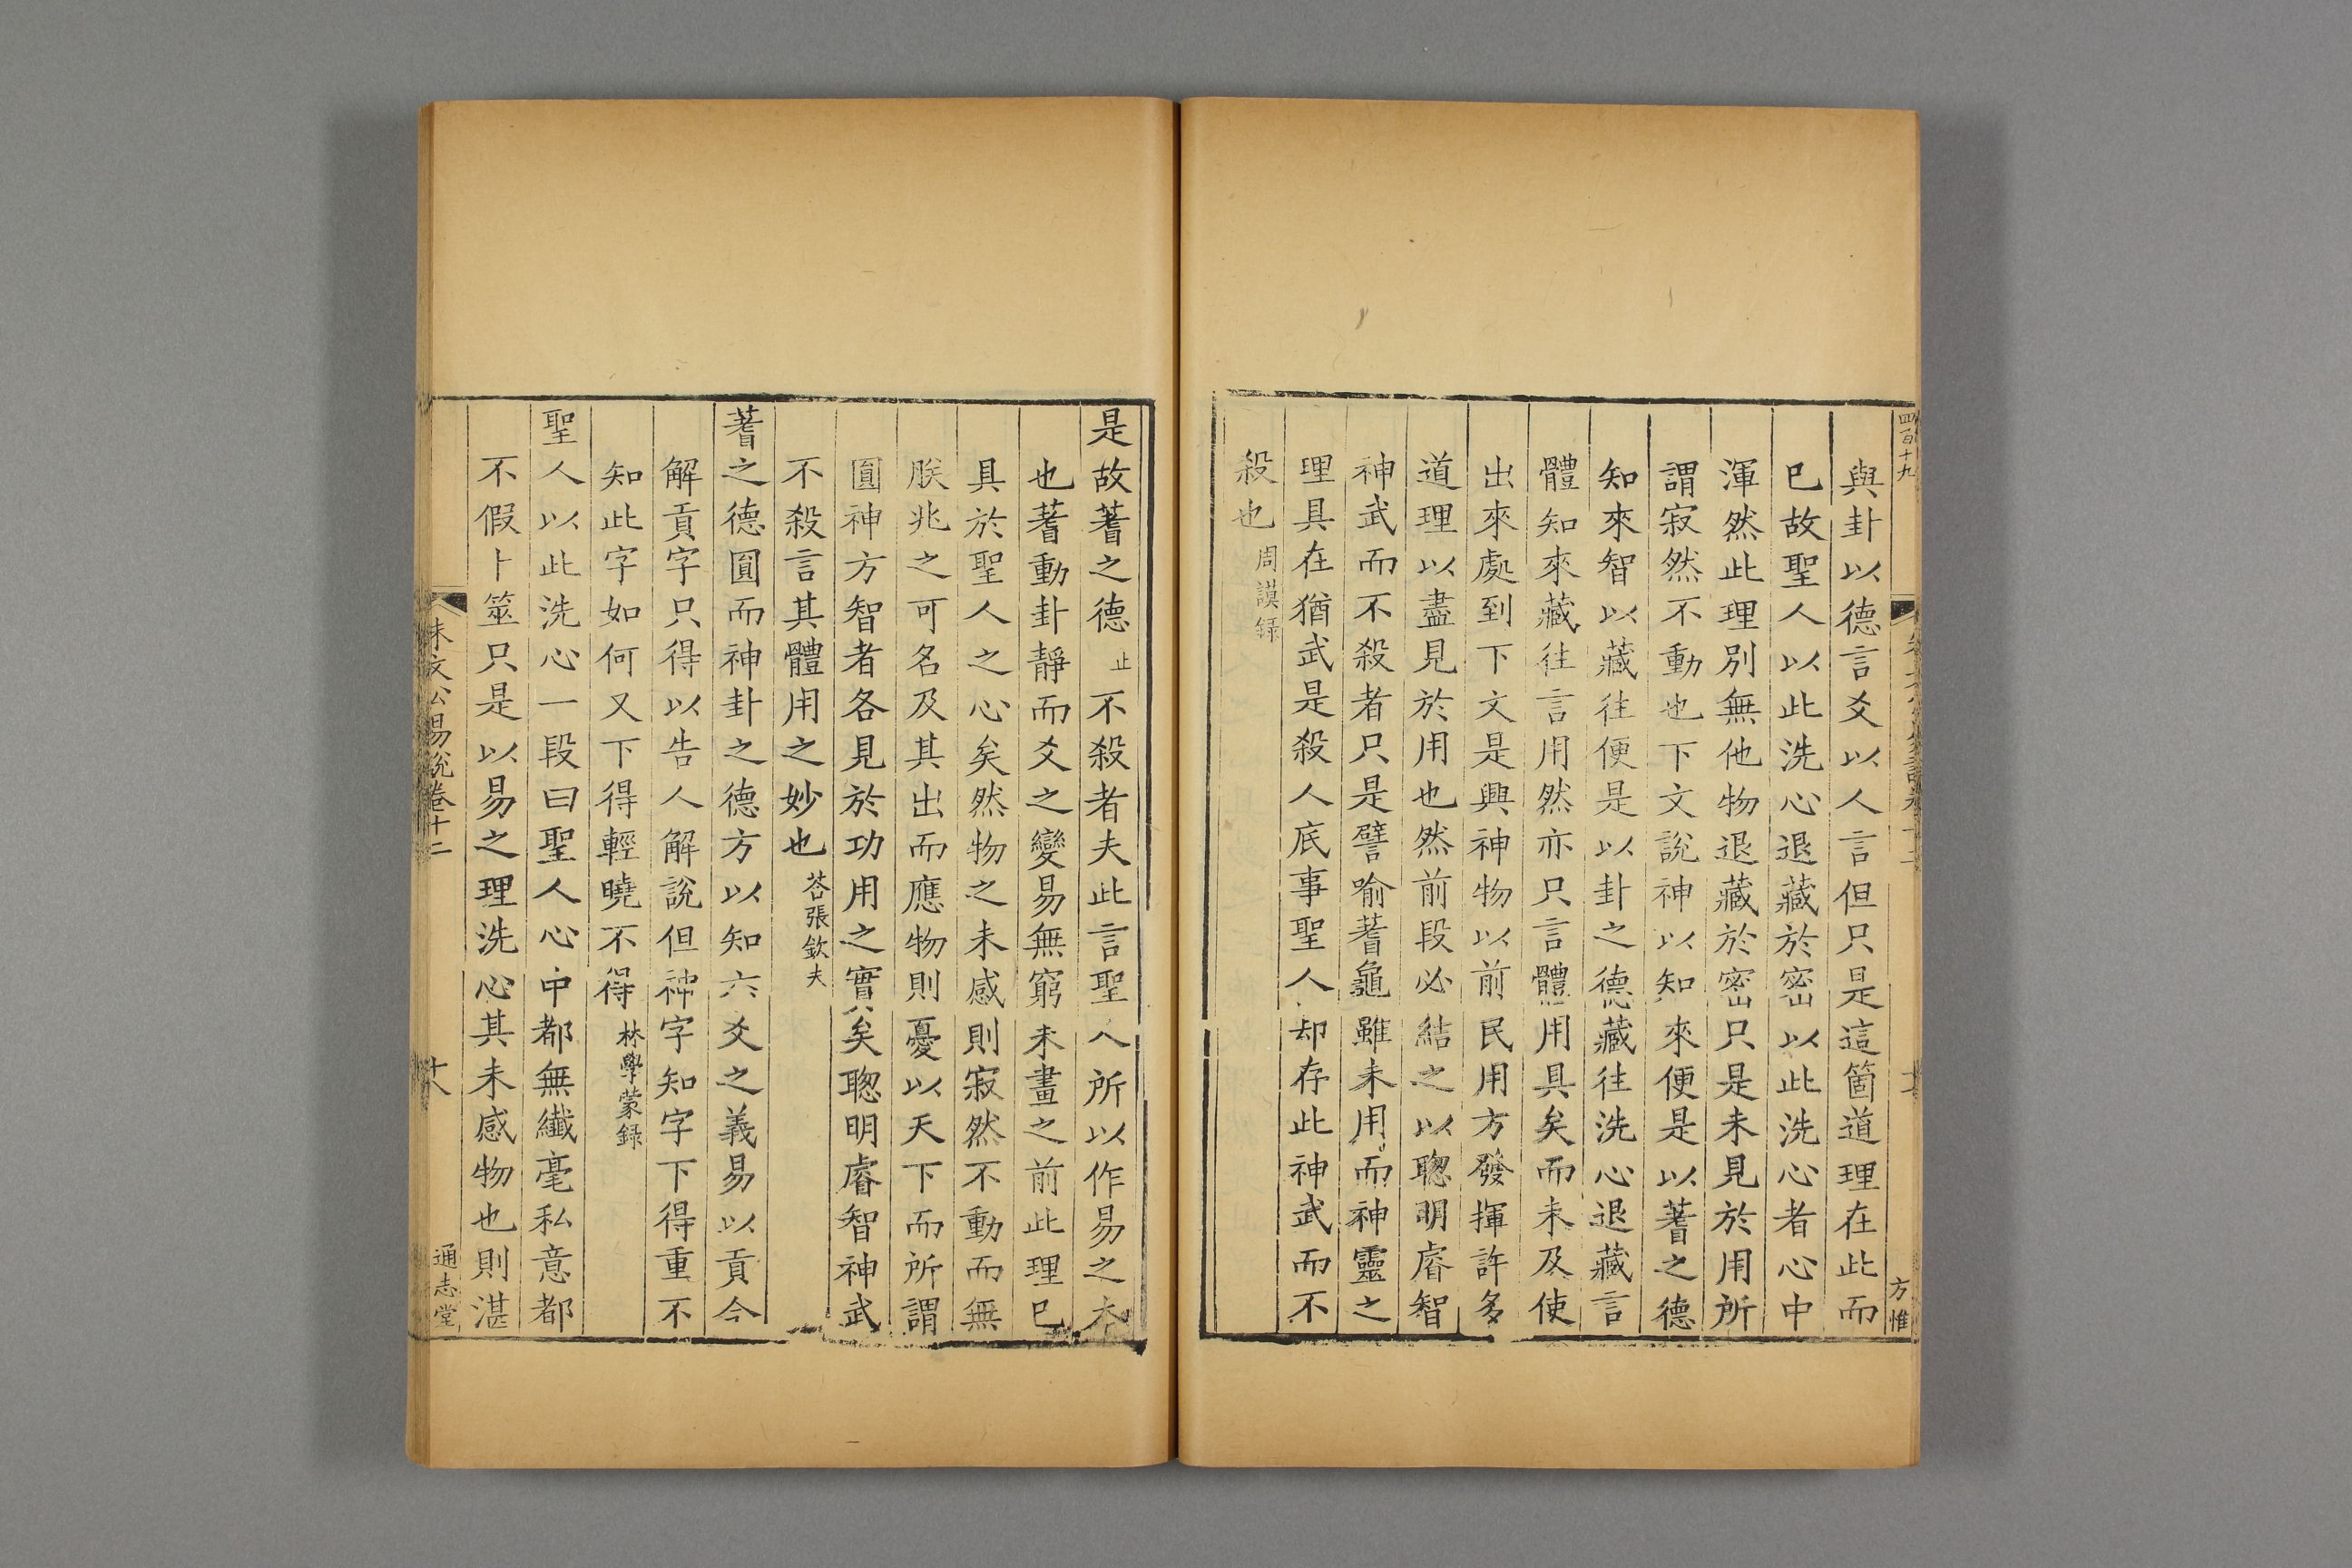 四百十九
方惟
與卦以德言爻以人言但只是這箇道理在此而
已故聖人以此洗心退藏於密以此洗心者心中
渾然此理別無他物退藏於密只是未見於用所
謂寂然不動也下文說神以知來便是以蓍之德
知來智以藏往便是以卦之德藏往洗心退藏言
體知來藏往言用然亦只言體用具矣而未及使
出來處到下文是興神物以前民用方發揮許多
道理以盡見於用也然前段必結之以聰明睿智
神武而不殺者只是譬喻蓍龜雖未用而神靈之
理具在猶武是殺人底事聖人却存此神武而不
殺也周謨録
是故蓍之德止不殺者夫此言聖人所以作易之本
也蓍動卦靜而爻之變易無窮未畫之前此理已
具於聖人之心矣然物之未感則寂然不動而無
朕兆之可名及其出而應物則憂以天下而所謂
圓神方智者各見於功用之實矣聰明睿智神武
不殺言其體用之妙也荅張欽夫
蓍之德圓而神卦之德方以知六爻之義易以貢今
解貢字只得以告人解說但神字知字下得重不
知此字如何又下得輕曉不得林學蒙録
聖人以此洗心一段曰聖人心中都無纖毫私意都
不假卜筮只是以易之理洗心其未感物也則湛
朱文公易說卷十二
十八
通志堂